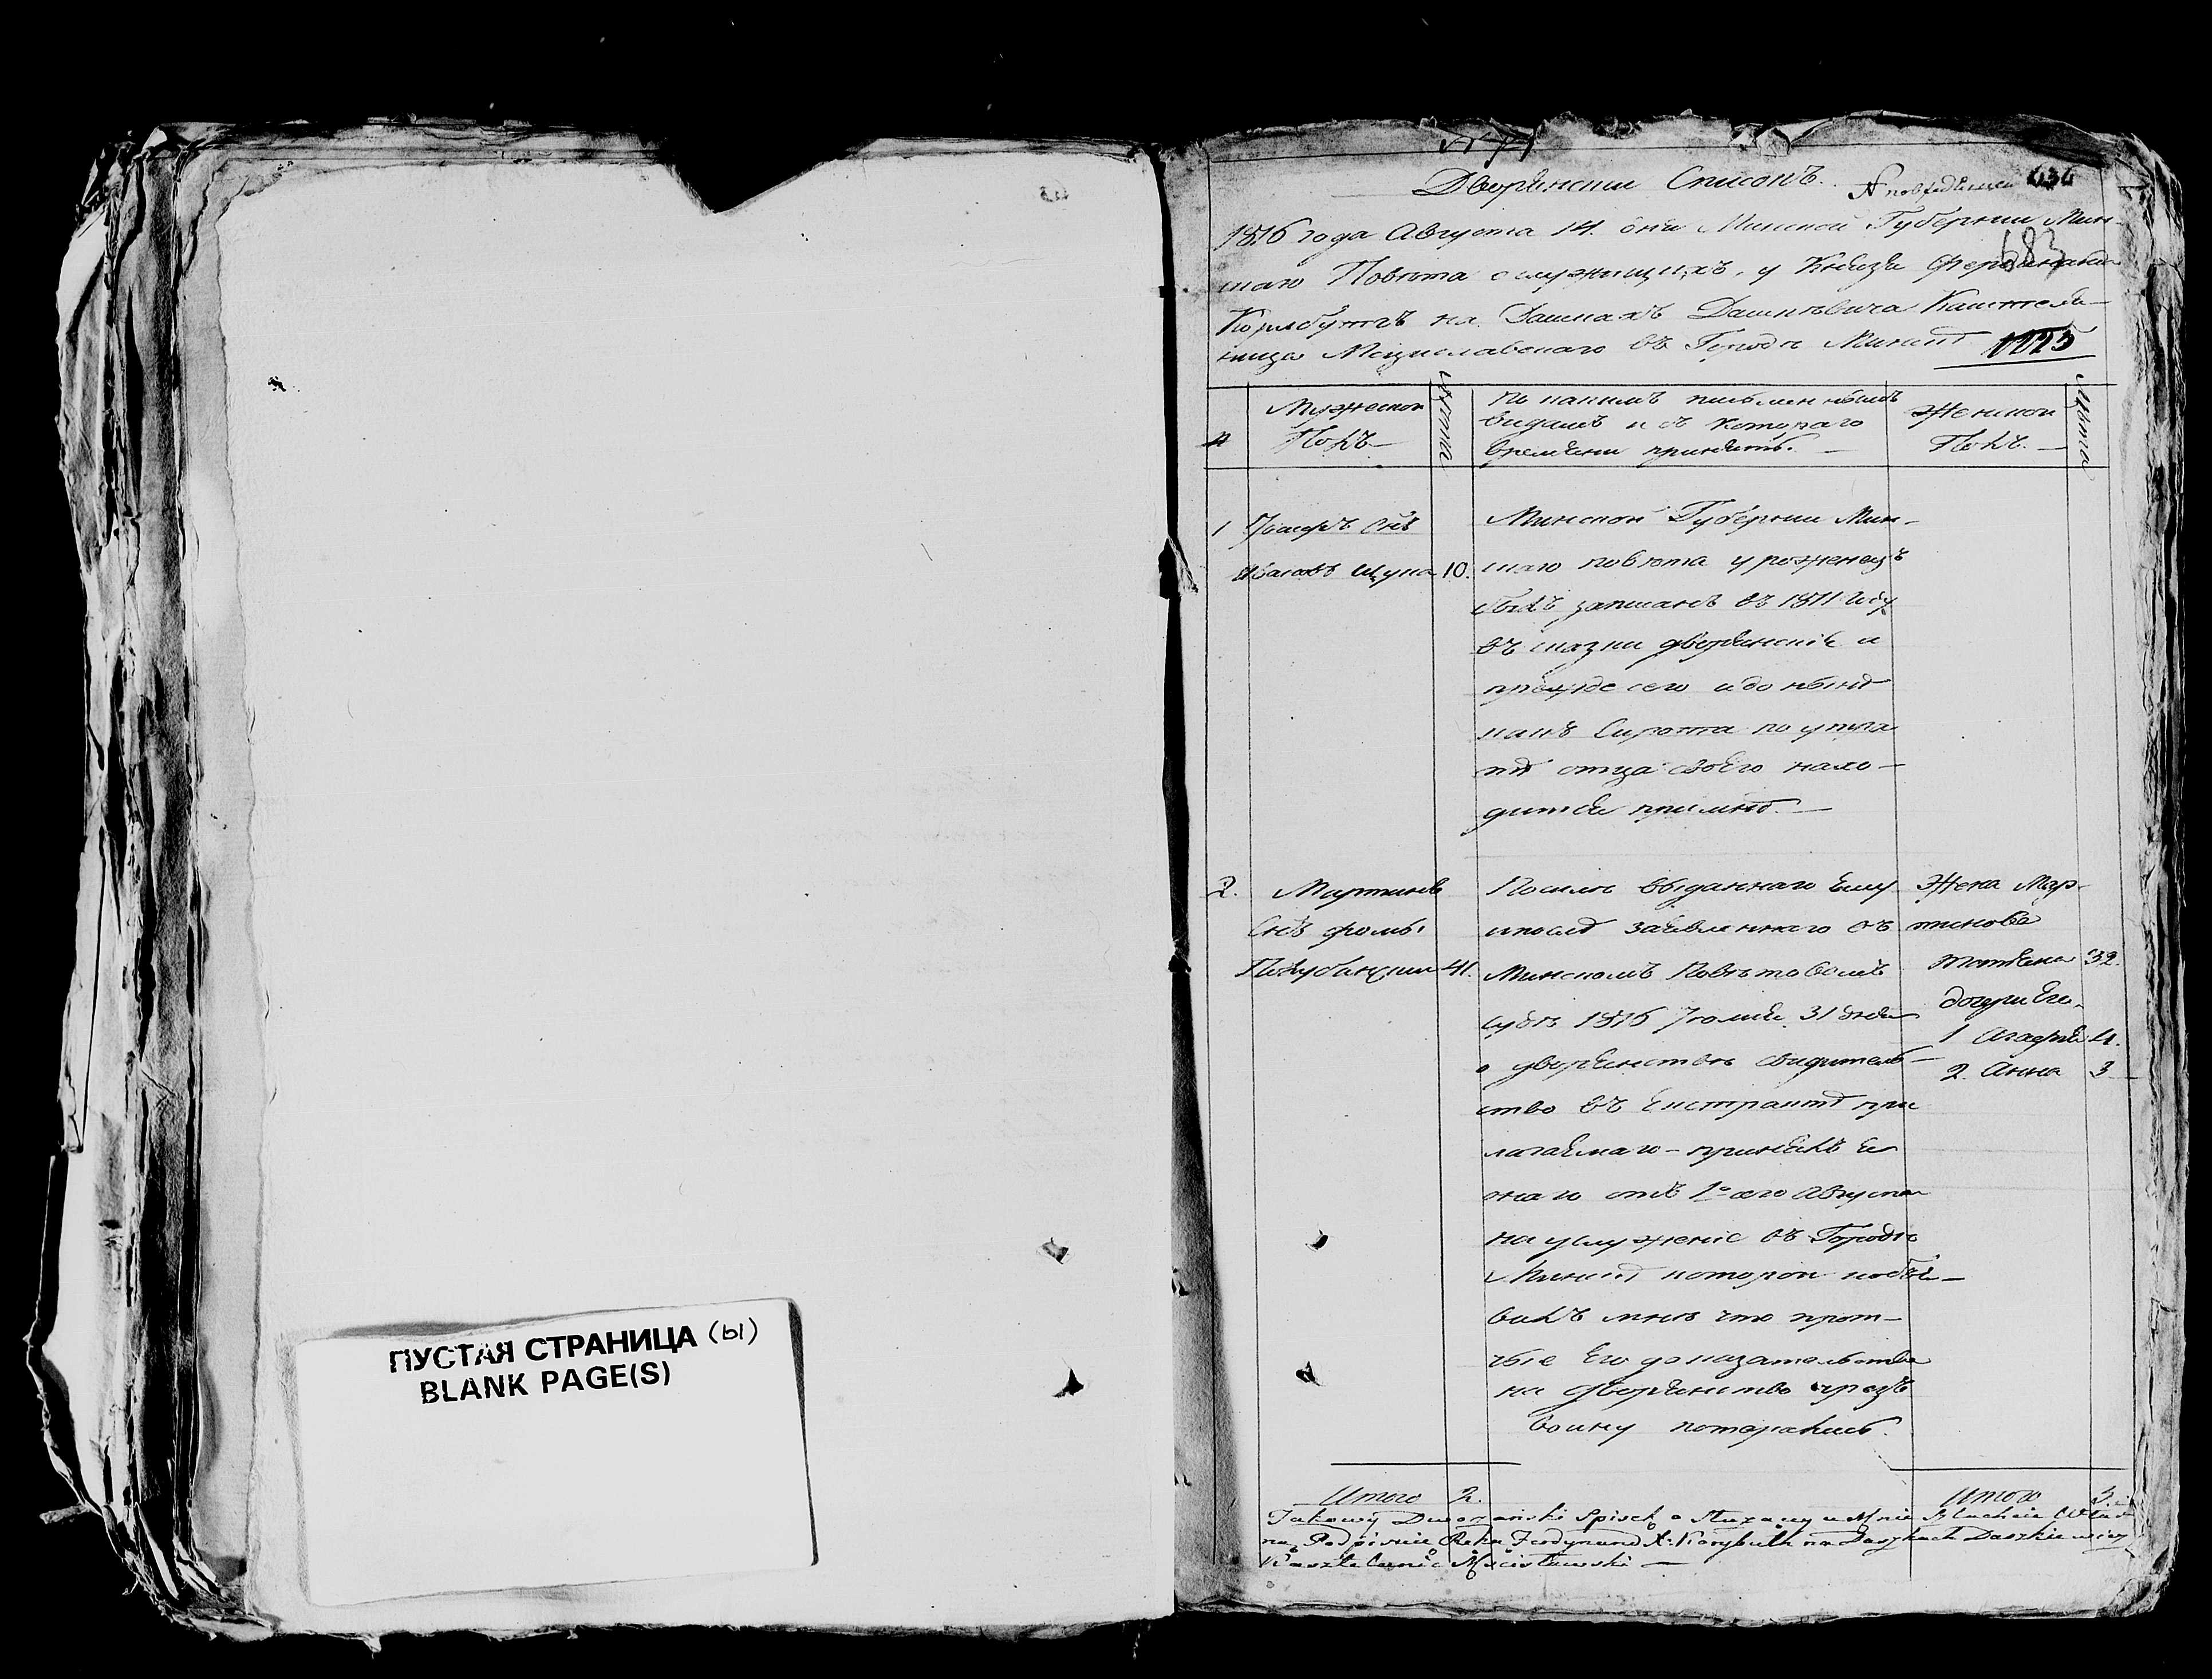 Дворянскии Списокъ.
636
1816 года Августа 14. дня Минской Губернии Мин-
683
скаго Повѣта о служащихъ, у Князя Фердинанда
Корибутъ на Дашкахъ Дашкевича Каштеля-
ница Мсциславскаго въ Городѣ Минскѣ
1125
Мужескои
Полъ
Лѣта
По какимъ письменнымъ
видамъ и съ котораго
времени принятъ.
Женскои
Полъ.
Лѣта
1 Іосифъ Снъ
Щука 10.
Минской Губернии Мин-
скаго повѣта уроженецъ
былъ записанъ въ 1811 году
въ сказки дворянскіе и
прежде сего и до нынѣ
какъ Сирота по утра
тѣ отца своего нахо-
дится при мнѣ.
2. Мартинъ
Снъ Фомы
Голубицкии 41.
По силѣ выданнаго Ему
и послѣ заявленнаго въ
Минскомъ Повѣтовомъ
Судѣ 1816 Іюля 31 дня
о дворянствѣ свидитель-
ство въ Екстрактѣ при
лагаемаго - принялъ я
онаго отъ 1го сего Августа
на услуженіе въ Городѣ
Минскѣ которои
вилъ мнѣ что прот-
чые Его доказательства
на Дворянство чрезъ
воину потерялись.
Жена Мар-
тинова
Татяна 32.
дочери Его
1 Агафия 4.
2. Анна 3
Итого 2.
Итого 3.
Takowy Dworzański Spisek o Służący u Mnie Szlachcie Włas
ną Podpisuię Ręką Ferdynand X: Korybuth na Daszkach Daszkiewicz
Kasztelanic Mścisławski
ПУСТАЯ СТРАНИЦА (ы)
BLANK PAGE(S)